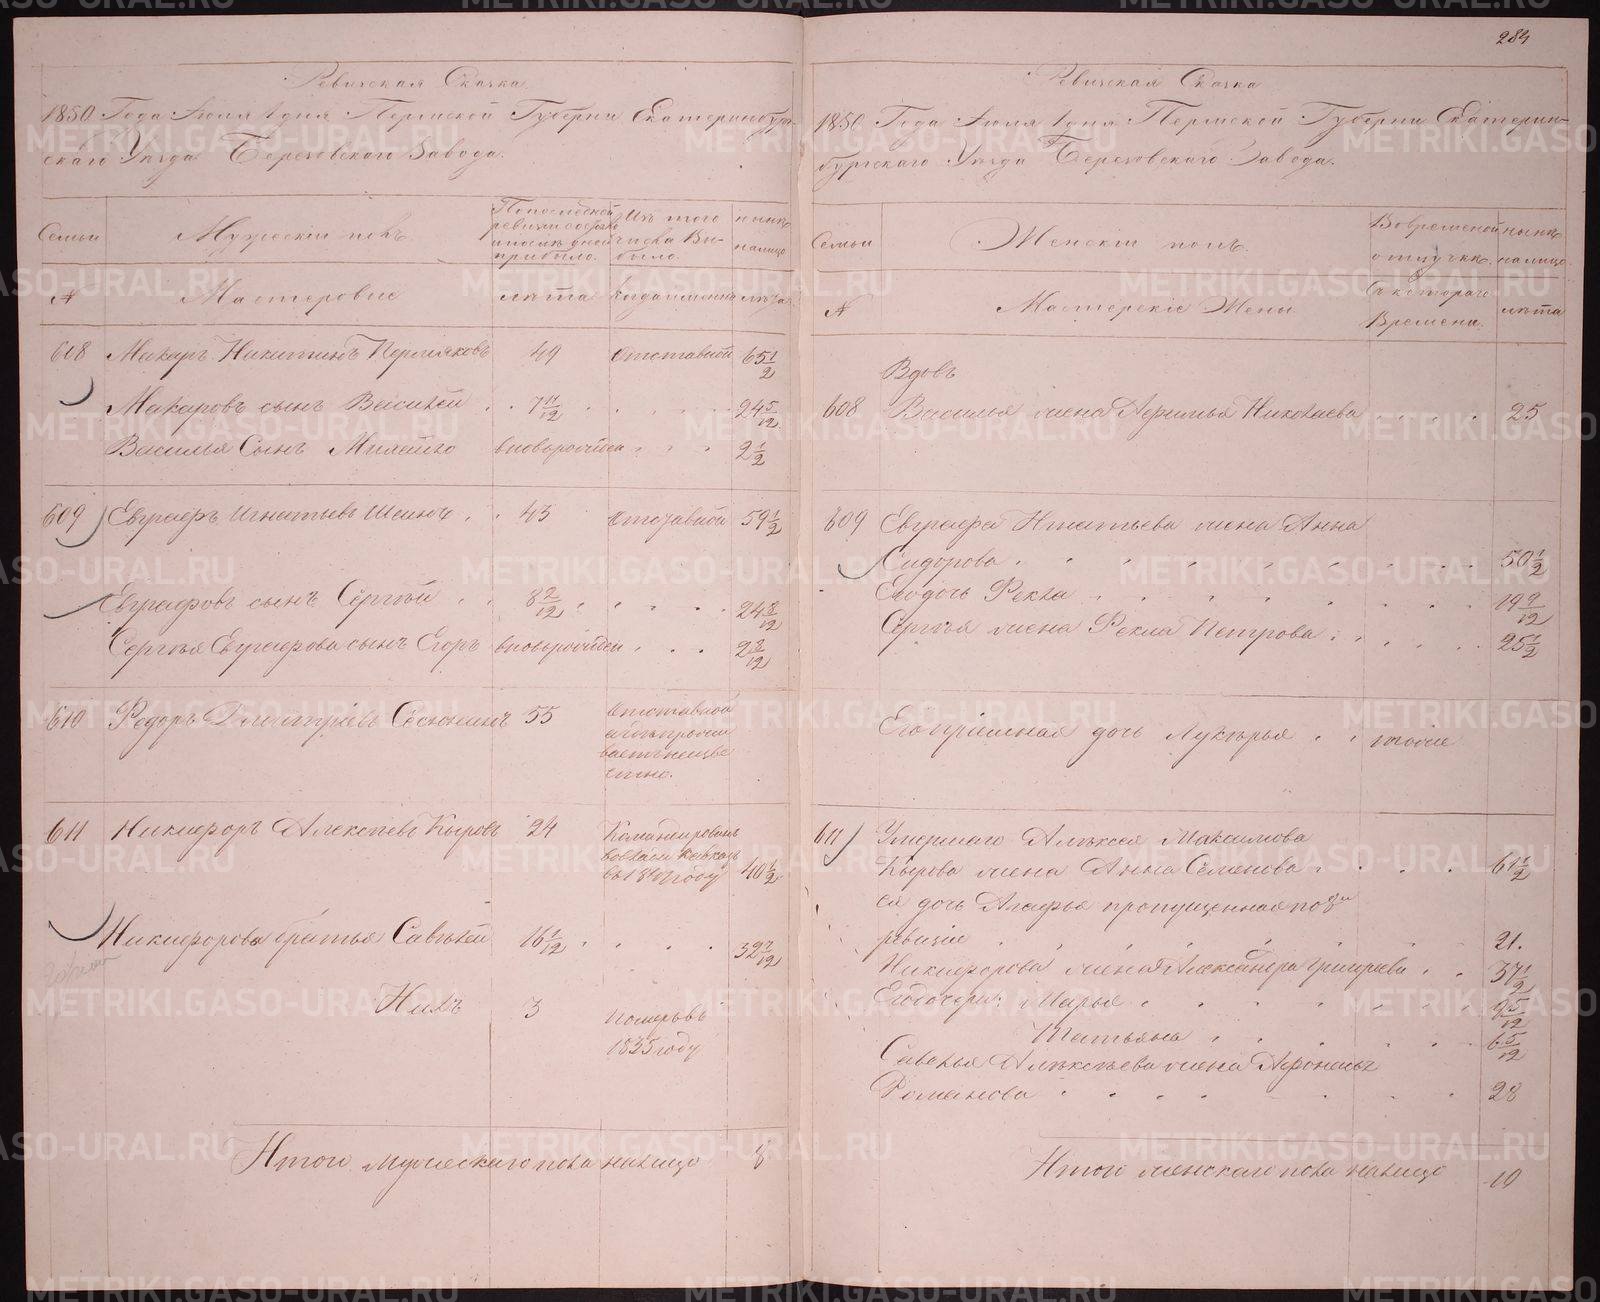 284
Ревижская Сказка
1850 Года Июля 1 дня Пермской Губерни Екатеринбург-
скаго Уѣзда Березовскаго Завода.
Семьи
Мужескiй полъ.
По последней ревизiи состояло и после дней прибыло.
Изъ того числа Выбыло.
нынѣ налицо
№
Мастеровые
лѣта
когда именно
лѣта
608 Макаръ Никитинъ Пермяковъ 49 отставной 65 1/2
Макаровъ сынъ Василей . . 7 11/12 . . . . 24 5/12
Василья Сынъ вновьрожден . . . 2 1/2
609 Евграфъ Игнатьевъ Шеинъ . . 43 отставной 59 1/2
Евграфовъ сынъ Сергѣй . . 8 2/12 . . . . 24 8/12
Сергѣя Евграфова сынъ Егоръ вновьрожден . . . 2 8/12
610 Федоръ Дмитрiевъ 55 отставной
611 Никифоръ Алексѣевъ Кыровъ 24 Командированъ
40 1/2
Никифорова братья Савѣлей 16 1/12 . . . . 32 7/12
Нилъ 3 померъ въ
1835 году
Итого мужескаго пола налицо 8
Ревижская Сказка
1850 Года Июля 1 дня Пермской Губерни Екатерин-
бургскаго Уѣзда Березовскаго Завода.
Семьи
Женскiй полъ.
Во временной отлучкѣ.
нынѣ налицо
№
Мастерскiе Жены
Съ котораго Времени.
лѣта
Вдовъ
608 Василья жена Афимья Николаева . . . . 25
609 Евграфа Игнатьева жена Анна
Сидорова . . . . . . . . . 50 1/2
Его дочь Фекла . . . . . . . . 19 9/12
Сергѣя жена Фекла Петрова . . . . . 25 1/2
Его прiемная дочь Лукерья . . тоже
611 Умершаго Алексея Максимова
Кырова жена Анна Семенова . . . . 61 1/2
ея дочь Агафья пропущенная по 8й
ревизiи . . . . . . . . 21.
Никифорова жена Александра Григорьева . . 37 1/2
Его дочери: Марья . . . . . . . 9 5/12
Татьяна . . . . . . 6 5/12
Савелья Алексѣева жена Афонасья
Романова . . . . . . . 28
Итого женскаго пола налицо 10
METRIKI.GASO-URAL.RU